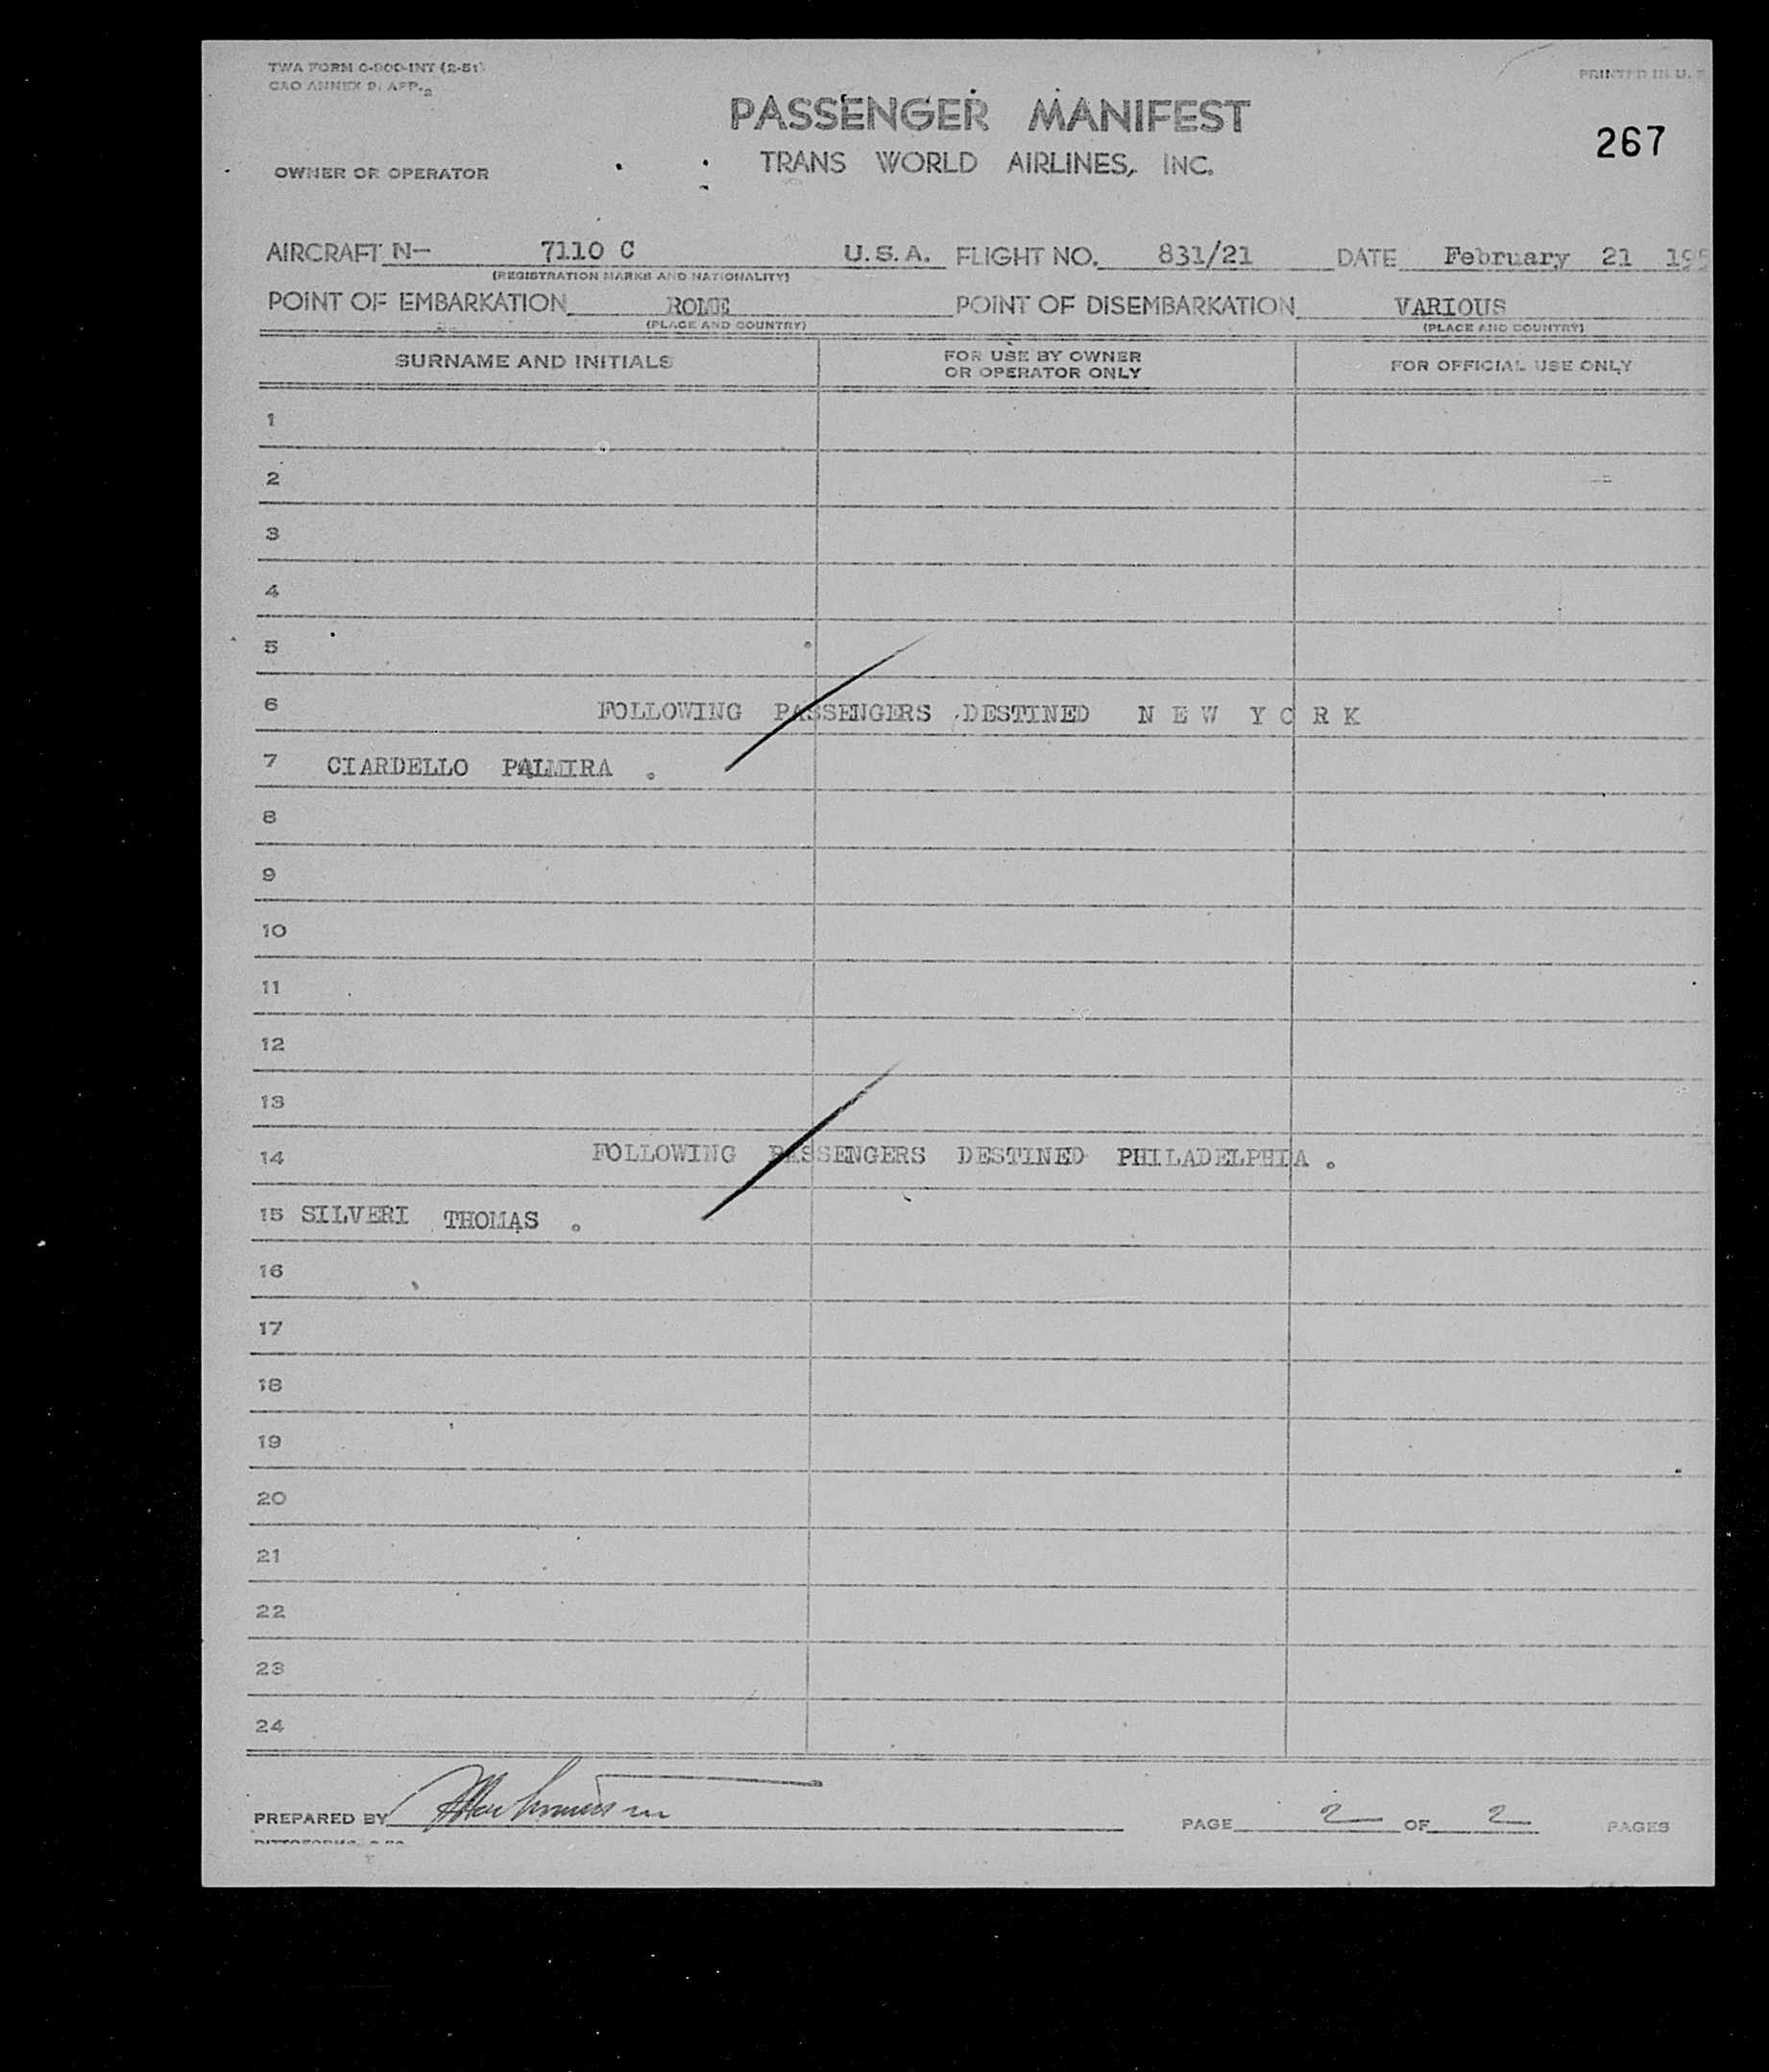 TWA FORM O-900-INT (2-51)
PRINTED IN U. S
CAO ANNEX 9. APP. 2
PASSENGER MANIFEST
267
OWNER OR OPERATOR
TRANS WORLD AIRLINES, INC.
AIRCRAFT N- 7110 C U.S.A. FLIGHT NO. 831/21 DATE February 21 195
(REGISTRATION MARKS AND NATIONALITY)
POINT OF EMBARKATION ROME POINT OF DISEMBARKATION VARIOUS
(PLACE AND COUNTRY) (PLACE AND COUNTRY)
SURNAME AND INITIALS FOR USE BY OWNER OR OPERATOR ONLY FOR OFFICIAL USE ONLY
1
2
3
4
5
6 FOLLOWING PASSENGERS DESTINED N E W Y O R K
7 CIARDELLO PALMIRA .
8
9
10
11
12
13
14 FOLLOWING PASSENGERS DESTINED PHILADELPHIA .
15 SILVERI THOMAS .
16
17
18
19
20
21
22
23
24
PREPARED BY PAGE 2 OF 2 PAGES